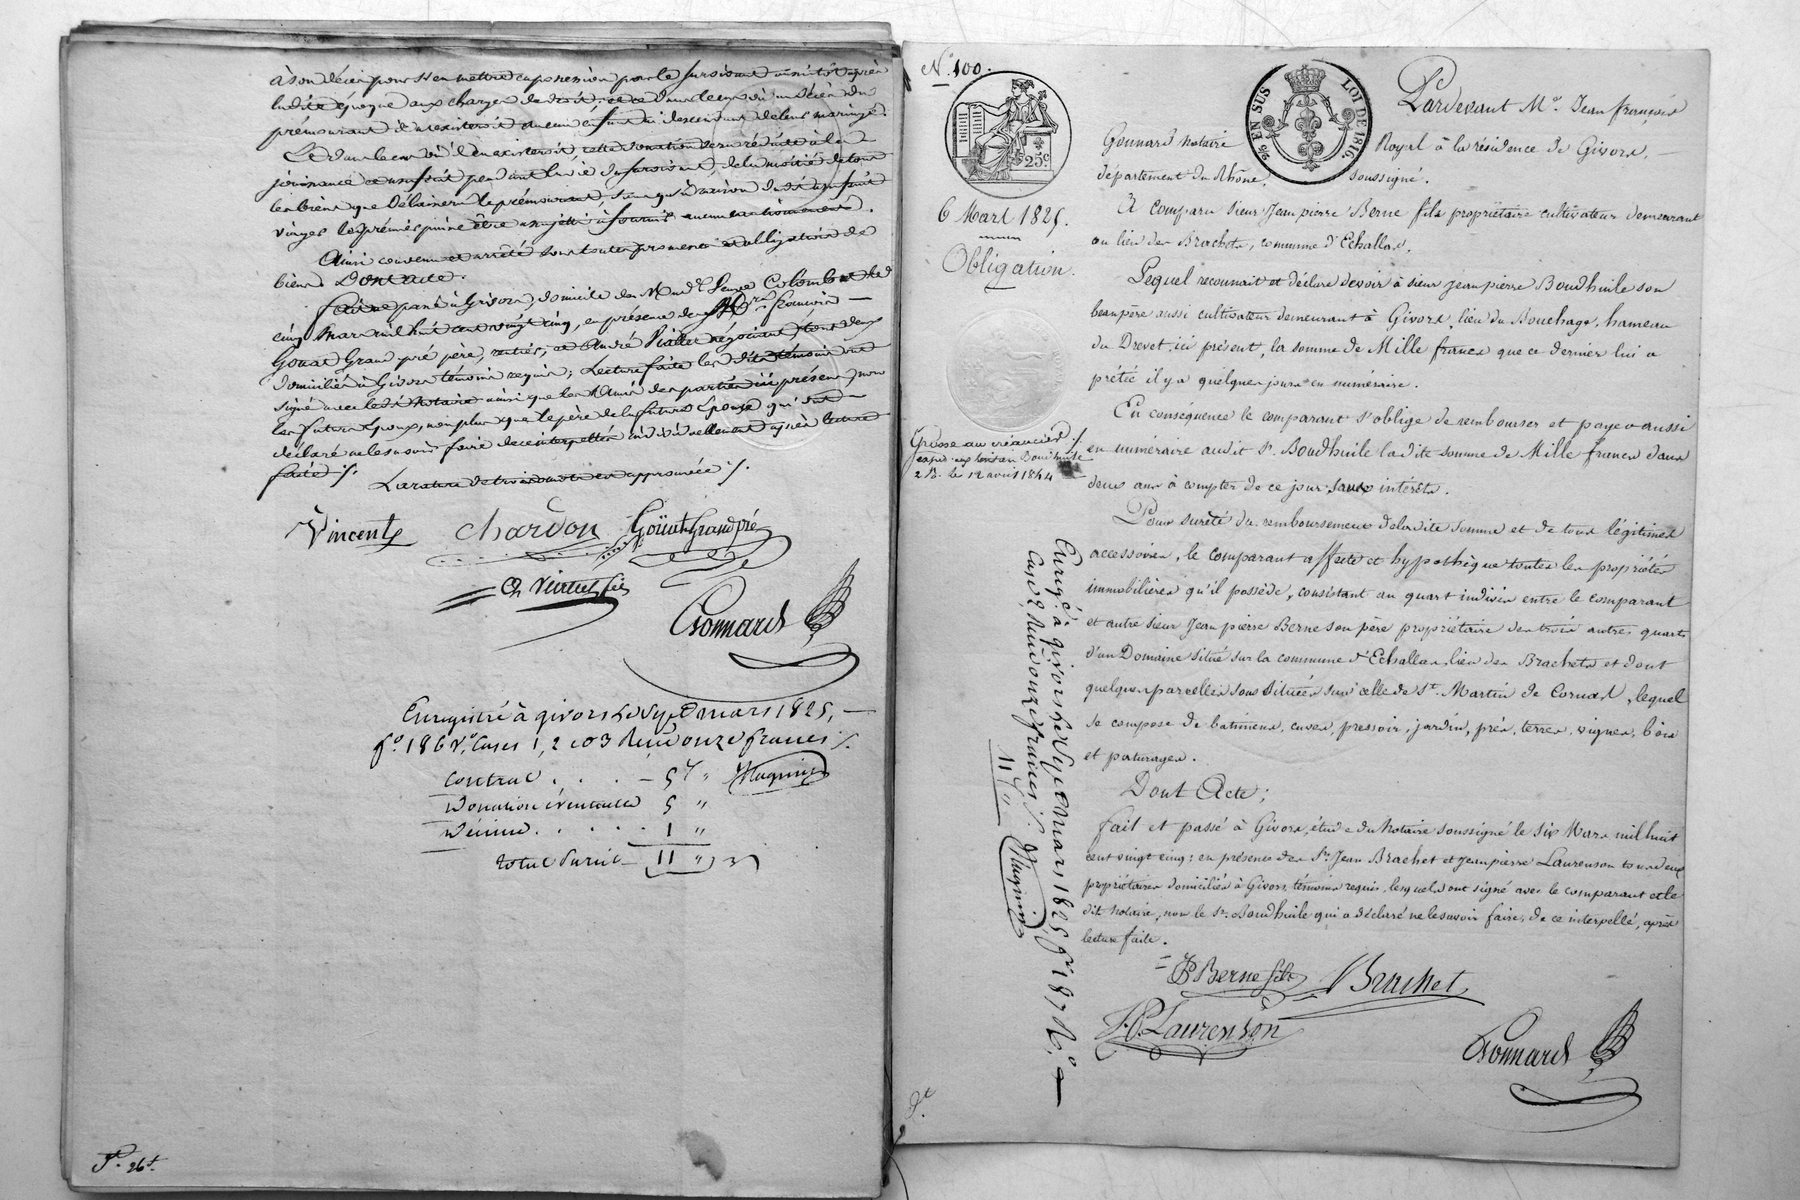 à son décès pour s'en mettre en possession pour le survivant aussitôt après
la dite époque aux charges de droit; et ce dans le cas où au décès du
prémourant il n'existeroit aucun enfant ni descendant de leur mariage.
Et dans le cas où il en existeroit, cette donation sera réduite à la
jouissance et usufruit pendant la vie du survivant, de la moitié de tous
les biens que délaissera le prémourant, sans qu'à raison du dit usufruit
les prémis puisse être assujetti à fournir aucun cautionnement.
Ainsi convenu et arrêté sous toutes promesses et obligations de
biens Dont acte.
fait et passé à Givors, domicile de Colomb le
cinq Mars mil huit cent vingt cinq, en présence de francois
Gouat Grand pré père, rentier, et André négociant, tous deux
domiciliés à Givors témoins requis; Lecture faite les dits témoins ont
signé avec le dit Notaire ainsi que les amis des parties ici présens, non
les futurs époux, non plus que le père de la future Epouse qui ont
déclaré ne le savoir faire de ce interpellés individuellement après lecture
faite ./.
La rature de trois mots est approuvée ./.
Vincent chardon Goüat Grandpré
Gonnard
Enregistré à givors le Sept mars 1825,
f° 186 v° Cases 1, 2 et 3 Reçu onze francs ./.
Contrat . . . . 5 f " Magnin
Donation éventuelle 5 "
Décime . . . . . 1 "
total Parue 11 "
P. 26 f.
N° 100.
25 c
6 Mars 1825.
Obligation.
Grosse au créancier ./.
2 R. le 12 avril 1844
EN SUS LOI DE 1816.
Pardevant Me. Jean françois
Gonnard notaire Royal à la résidence de Givors,
département du Rhône, soussigné.
A comparu Sieur Jean pierre Berne fils propriétaire cultivateur demeurant
au lieu des Brachets, commune d'Echallas,
Lequel reconnait et déclare devoir à sieur jean pierre Boudhuile son
beaupère aussi cultivateur demeurant à Givors, lieu du Bouchage, hameau
du Drevet, ici présent, la somme de Mille francs que ce dernier lui a
prêtée il y a quelques jours en numéraire.
En conséquence le comparant s'oblige de rembourser et payer aussi
en numéraire au dit Sr. Boudhuile la dite somme de Mille francs dans
deux ans à compter de ce jour sans intérêts.
Pour sureté du remboursement de la dite somme et de tous légitimes
accessoires, le comparant affecte et hypothèque toutes les propriétés
immobilières qu'il possède, consistant au quart indivis entre le comparant
et autre Sieur Jean pierre Berne son père propriétaire des trois autres quarts
d'un Domaine situé sur la commune d'Echallas, lieu des Brachets et dont
quelques parcelles sous situées sur celle de St. Martin de Cornas, lequel
se compose de batimens, cuves, pressoir, jardin, prés, terres, vignes, bois
et paturages.
Dont Acte;
fait et passé à Givors, étude du Notaire soussigné le six Mars mil huit
cent vingt cinq; en présence des Srs. Jean Brachet et Jean pierre Laurenson tous deux
propriétaires domiciliés à Givors, témoins requis, lesquels ont signé avec le comparant et le
dit notaire, non le Sr. Boudhuile qui a déclaré ne le savoir faire, de ce interpellé, après
lecture faite.
JP Berne fils Brachet
J. P. Laurenson
Gonnard
Enregé. à givors le Sept mars 1825 f° 187 R°.
Case 2, Reçu onze francs ./. Magnin
11 f "